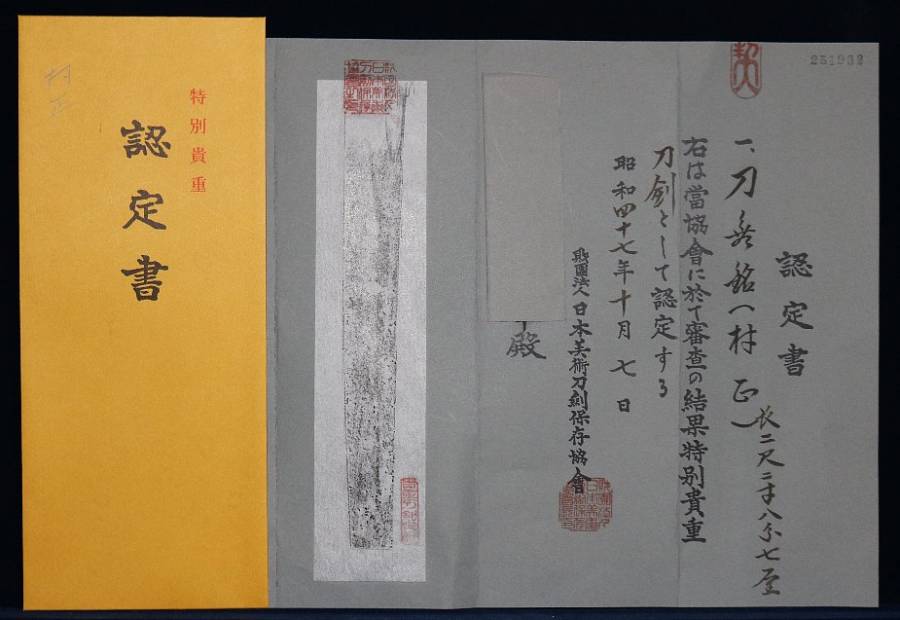 251932
認定書
一、刀 無銘(村正)
長二尺二寸八分七厘
右は當協會に於て審査の結果特別貴重
刀劍として認定する
昭和四十七年十月七日
財團法人日本美術刀劍保存協會
殿
特別貴重
認定書
村正